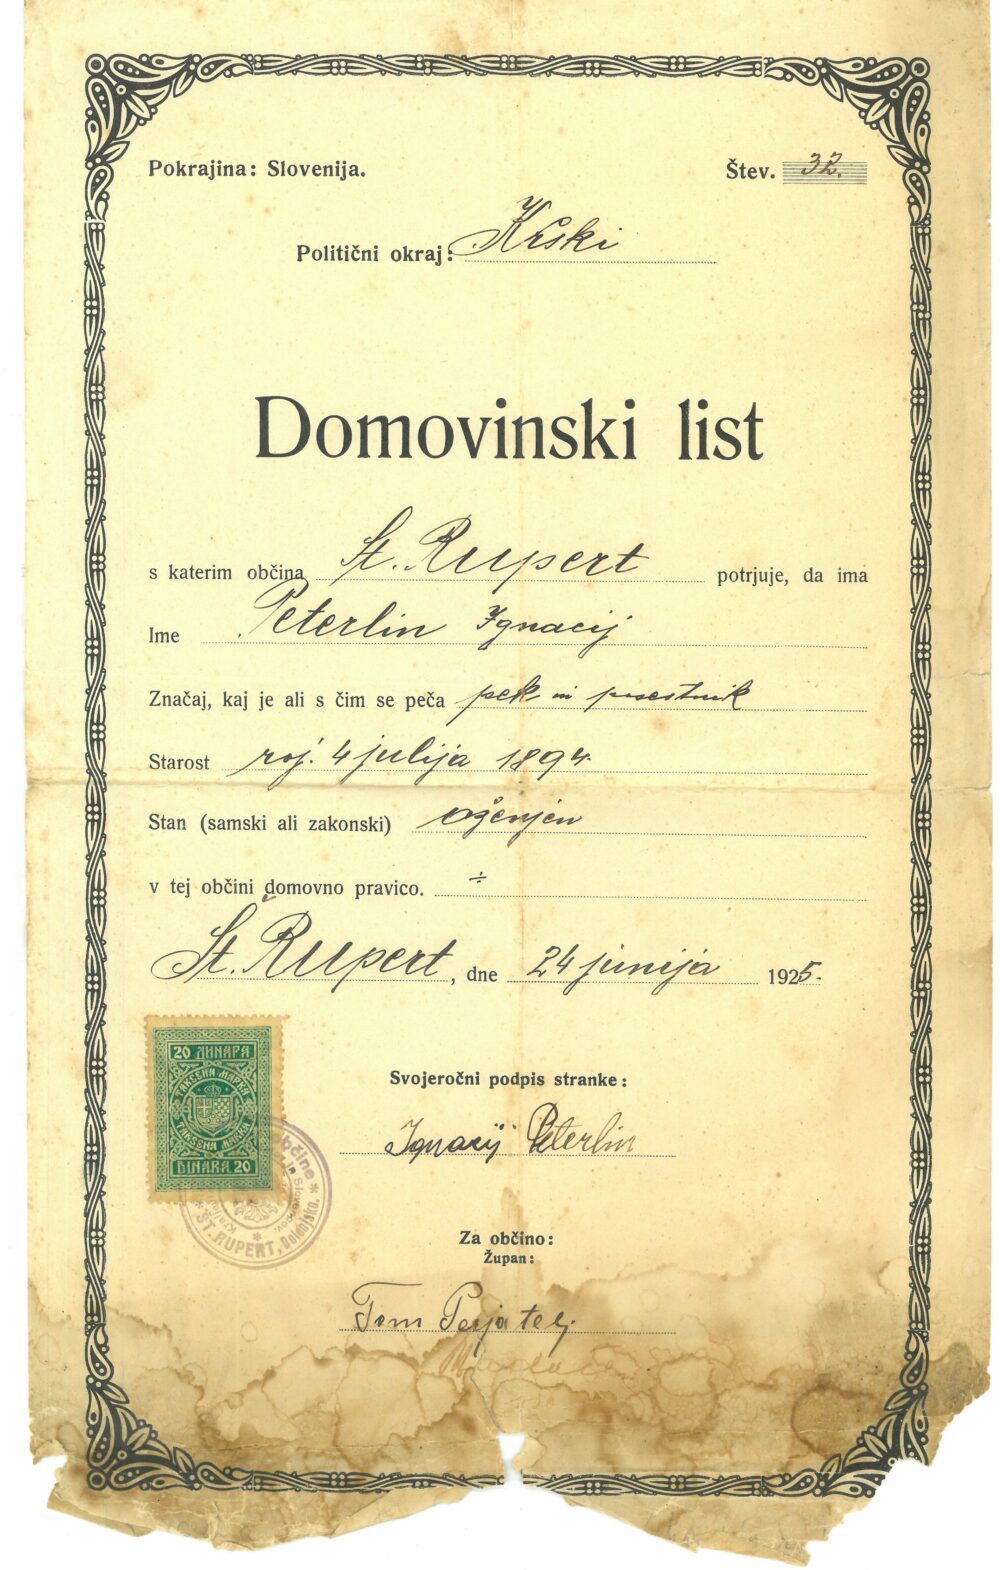 Pokrajina: Slovenija.
Štev. 32.
Politični okraj: Krški
Domovinski list
s katerim občina St. Rupert potrjuje, da ima
Ime Peterlin Ignacij
Značaj, kaj je ali s čim se peča pek in posestnik
Starost roj. 4 julija 1894.
Stan (samski ali zakonski) oženjen
v tej občini domovno pravico. ÷
Št. Rupert, dne 24 junija 1925.
20 ДИНАРА
ТАКСЕНА МАРКА
TAKSENA MARKA
DINARA 20
občine
ŠT. RUPERT, Dolenjsko.
Svojeročni podpis stranke:
Ignacij Peterlin
Za občino:
Župan:
Tom Perjatelj